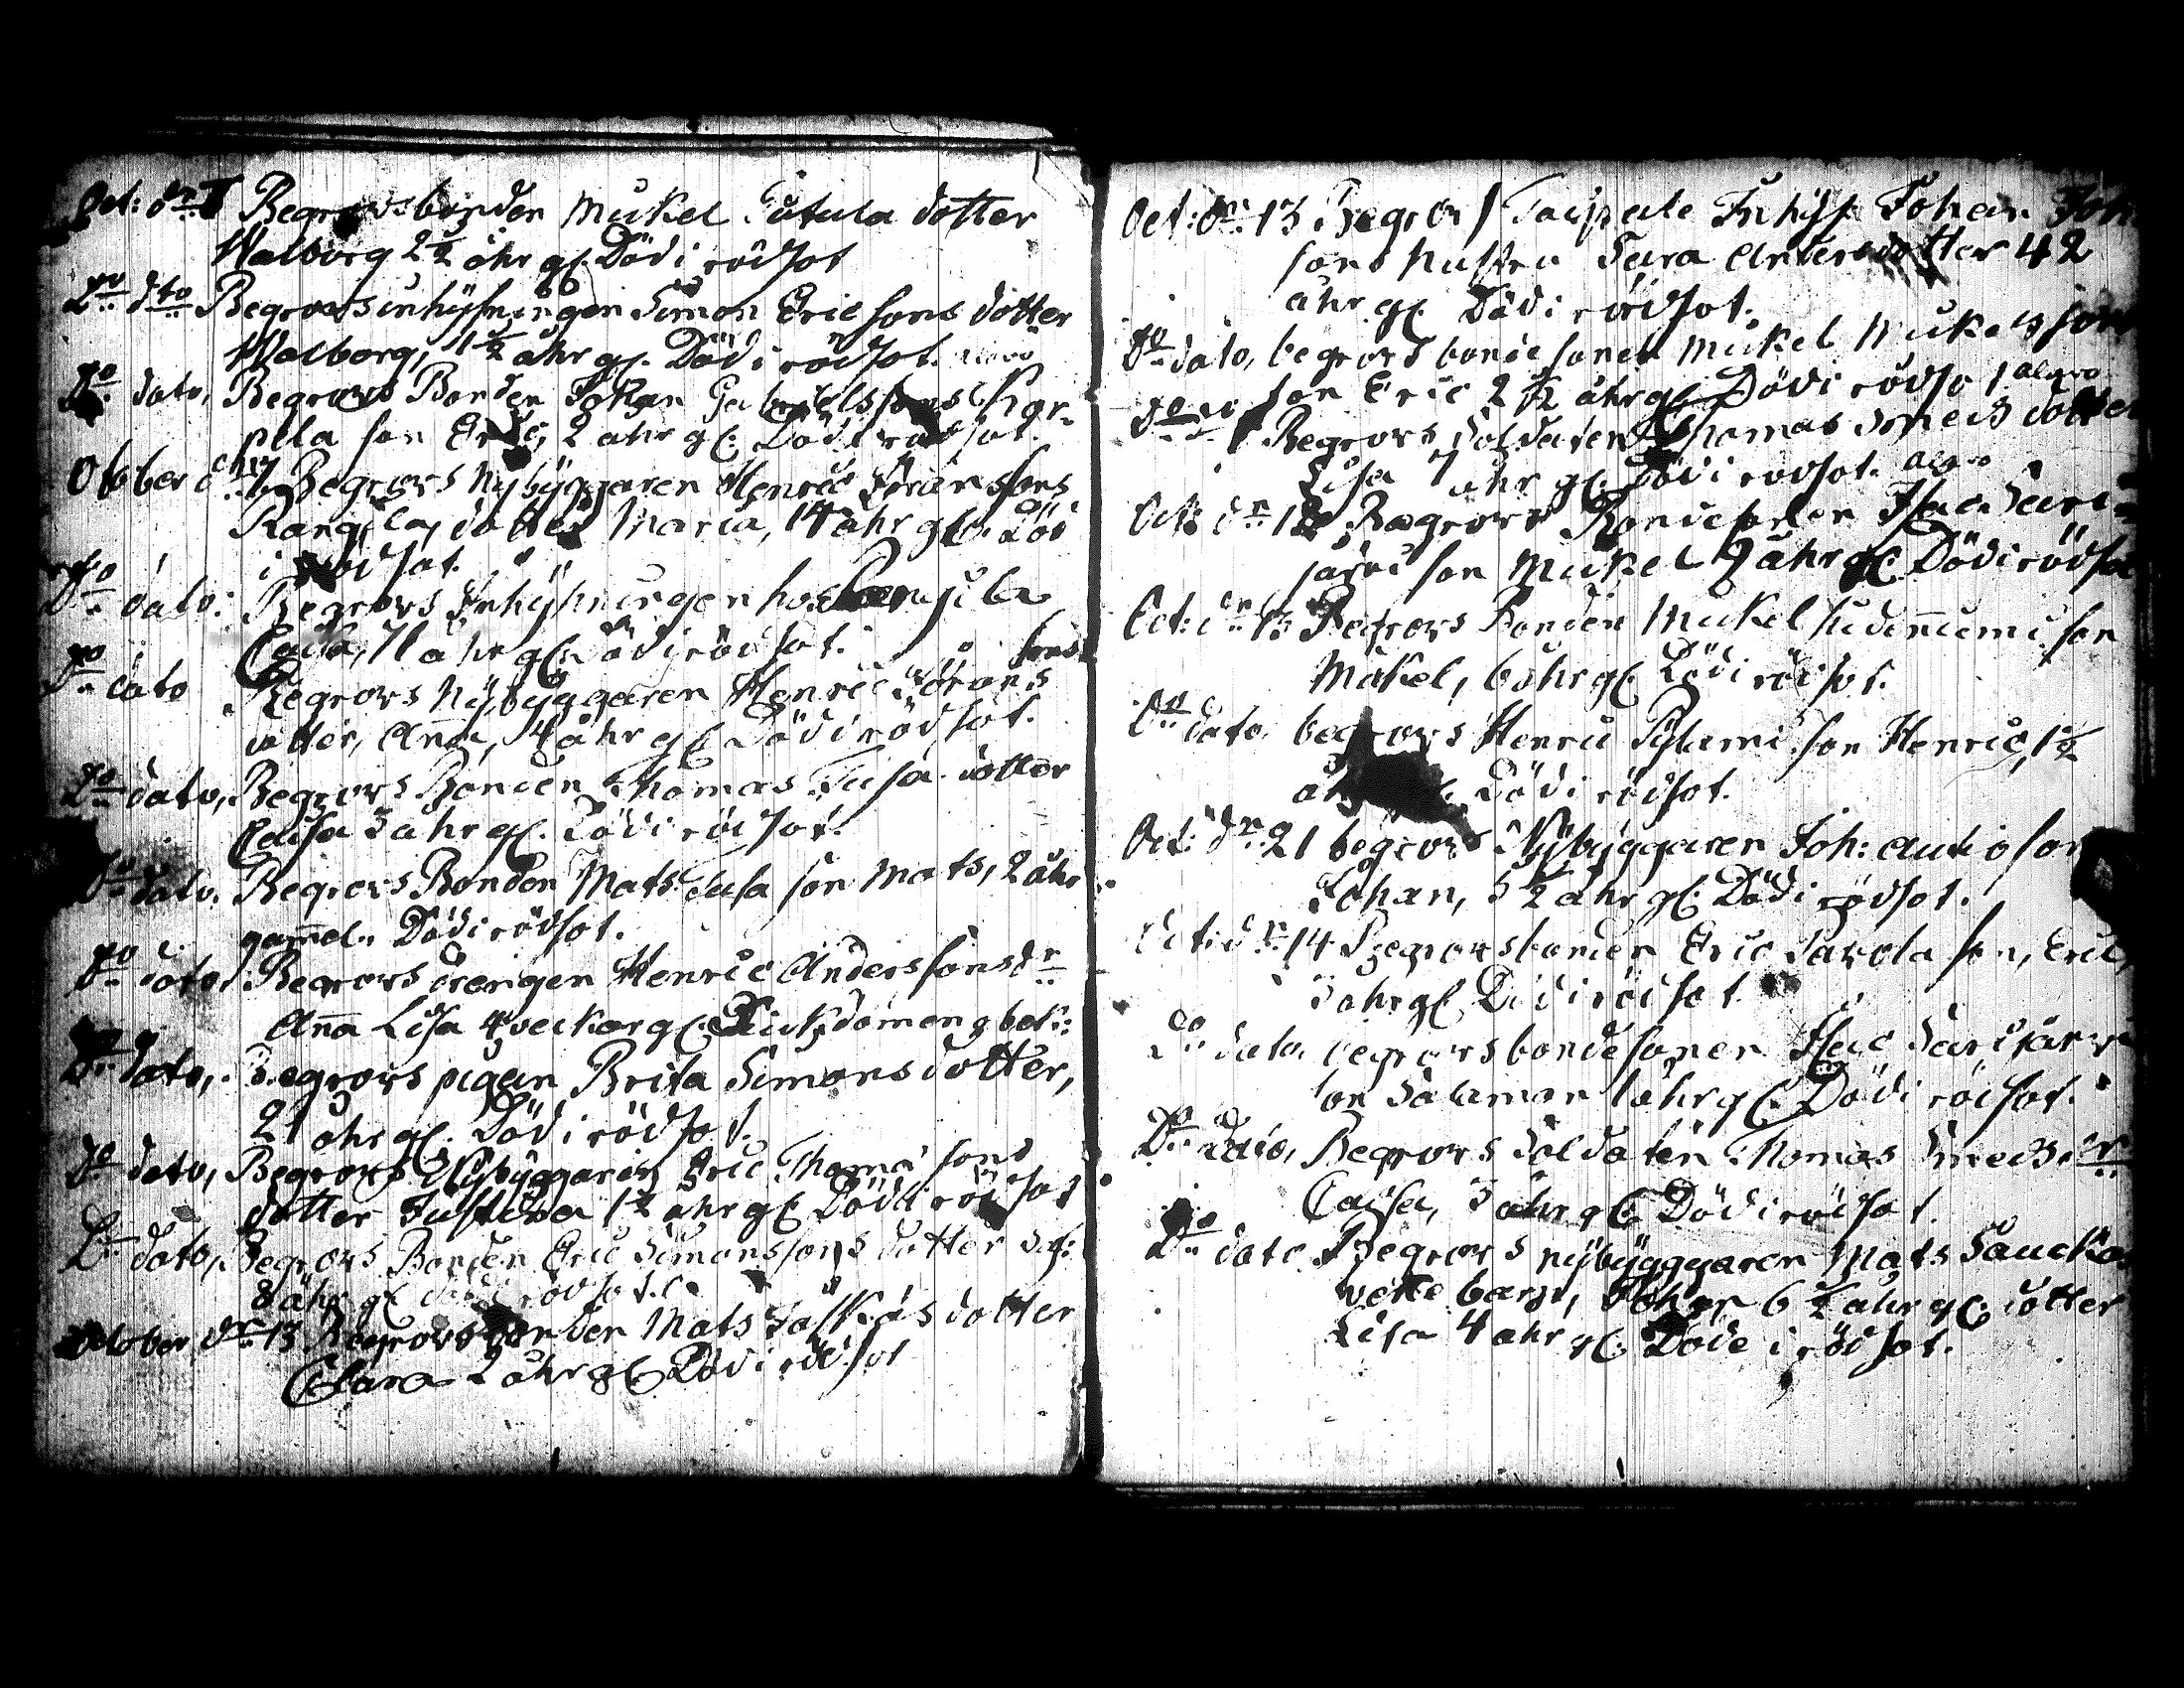 Oct: dn Begrovs bonden Mickel dotter
Walborg 2 1/2 åhr gl. Död i rödsot
Do dto Begrovs inhysningen Simon Ericsons dotter
Walborg, 1 1/2 åhr gl. Död i rödsot.
Do dato, Begrovs Bonden Johan Gabrielssons Kar-
pila son Eric, 2 åhr gl. Död i rödsot.
October Begrovs Nybyggaren Henric Jöransons
dotter Maria, 14 åhr gl. Död
i rödsot.
Do dato: Begrovs Inhysningen hos
Caisa, 11 åhr gl. Död i rödsot.
Do dato Begrovs Nybyggaren Henric Jörans sons
dotter, Anna, åhr gl. Död i rödsot.
Do dato, Begrovs Bonden Thomas Tusa dotter
Caisa 3 åhr gl. Död i rödsot.
Do dato. Begrovs Bonden Mats Tusa son Mats, 2 åhr
gam̄el. Död i rödsot.
Do dato, Begrovs drengen Henric Anderssons dr
Anna Lisa 4 veckor gl. Siukdomen obek:
Do dato, Begrovs pigan Brita Simonsdotter,
21 åhr gl. Död i rödsot.
Do dato, Begrovs Nybyggaren Eric Thomasons
dotter Justina 1 1/2 åhr gl. Död i rödsot
Do dato, Begrovs Bonden Eric Simonssons dotter
8 åhr gl. död i rödsot.
October dn 13 Begrovs bonden Mats dotter
Clara 2 åhr gl. Död i rödsot
Oct: dn 13 Begrovs Taipale Inhys. Johan
sons hustru Sara Andersdotter 42
åhr gl. Död i rödsot.
Do dato, begrovs bondesonen Mickel Mickelssons
son Eric 2 1/2 åhr gl. Död i rödsot
Do Begrovs Soldaten Thomas Smeds dotter
Lisa 7 åhr gl. Död i rödsot.
Oct: dn Begrovs Bondesonen Isac Sari-
järvi son Mickel 9 åhr gl. Död i rödsot
Oct: dn 13 Begrovs Bonden Mickel son
Mickel, 6 åhr gl. Död i rödsot.
Do dato begrovs Henric Pylami son Henric, 1 1/2
åhr gl. Död i rödsot.
Oct: dn 21 begrovs Nybyggaren Joh: Autio son
Johan, 5 1/2 åhr gl. Död i rödsot.
Oct: dn 14 Begrovs bonden Eric Savola son, Eric,
3 åhr gl. Död i rödsot
Do dato, begrovs bondesonen Isac Sarijärvi
son Salamon 1 åhr gl. Död i rödsot.
Do dato, Begrovs Soldaten Thomas Smeds dr
Caisa, 3 åhr gl. Död i rödsot.
Do dato Begrovs nybyggaren Mats Saucko-
vette barn, Johan 6 1/2 åhr gl. dotter
Lisa 4 åhr gl. Döde i rödsot.